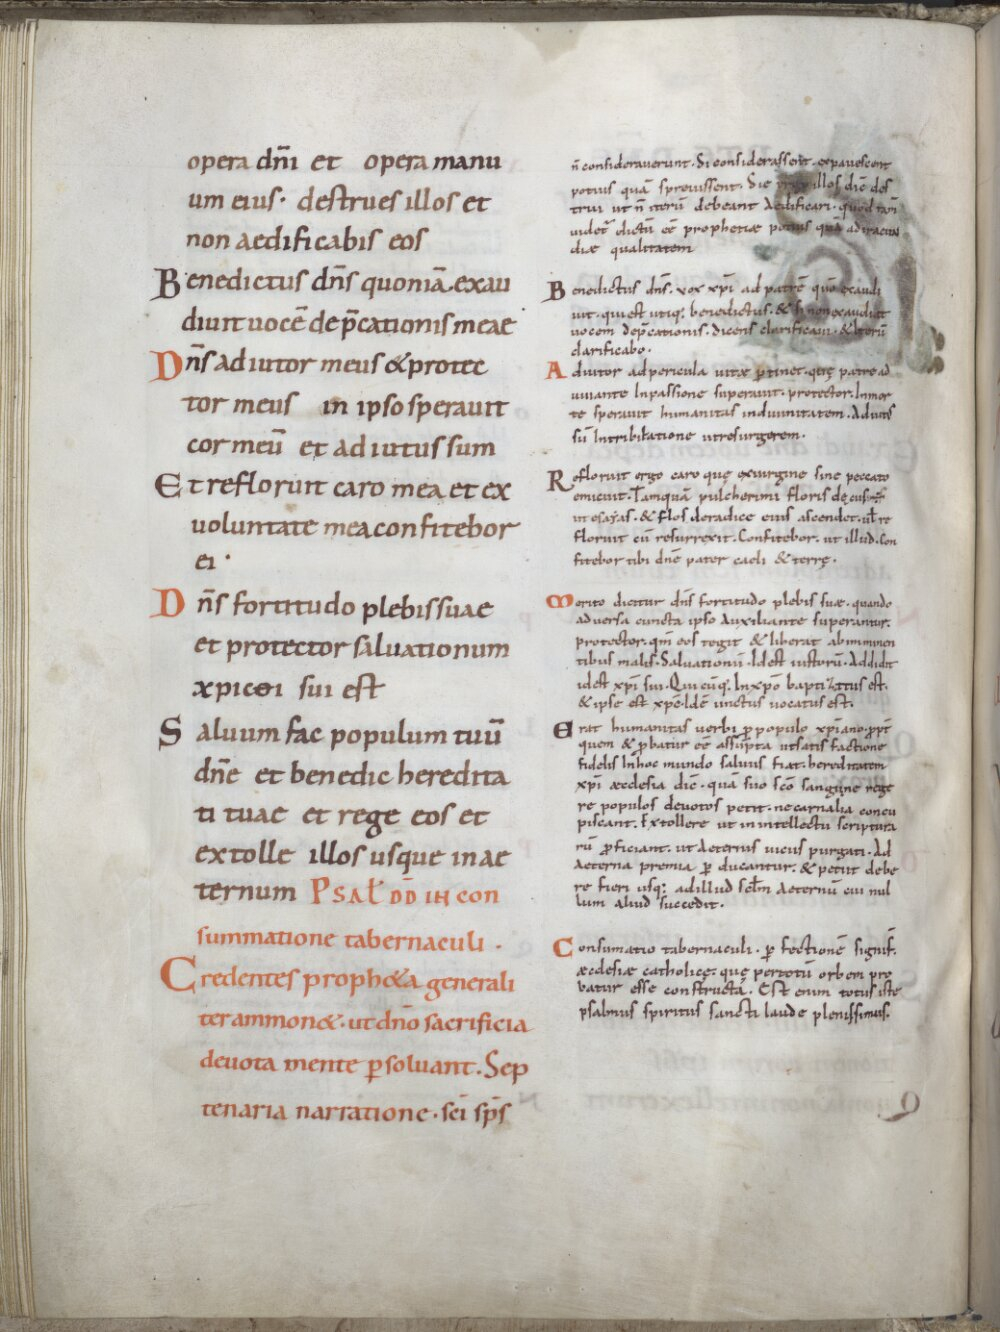 opera dn̄i et opera manu
um eius· destrues illos et
non aedificabis eos
Benedictus dn̄s quoniā exau
diuit uocē dep̄cationis meae
Dn̄s adiutor meus & protec
tor meus in ipso sperauit
cor meū et adiutus sum
Et refloruit caro mea et ex
uoluntate mea confitebor
ei·
Dn̄s fortitudo plebis suae
et protector saluationum
xpicti sui est
Saluum fac populum tuū
dn̄e et benedic heredita
ti tuae et rege eos et
extolle illos usque in ae
ternum Psal̄ DD in con
summatione tabernaculi·
Credentes proph&a generali
ter ammon&· ut dn̄o sacrificia
deuota mente ꝑsoluant. Sep
tenaria narratione· sc̄i sp̄s
n̄ considerauerunt. Si considerassent. expauescent
potius quā spreuissent. Sic illos dic̄ des
trui ut n̄ iterū debeant Aedificari. quod tam̄
uidet̄ dictū eē prophetiae potius quā
diae qualitatem
Benedictus dn̄s. vox xp̄i ad patrē quō exaudi
uit. qui est utiq; benedictus. & si non exaudi&
uocem dep̄cationis. dicens clarificaui. & iterū
clarificabo.
Adiutor ad pericula uitae ꝑtinet. quę patre ad
iuuante In passione superauit. protector. In mor
te sperauit humanitas in diuinitatem. Adiutus
sū In tribulatione ut resurgerem.
Refloruit ergo caro quę exuirgine sine peccato
emicuit. Tamquā pulcherimi floris
ut esaias. & flos de radice eius ascendet. ul̄ re
floruit cū resurrexit. Confitebor. ut illud. Con
fitebor tibi dn̄e pater caeli & terrę.
Merito dicitur dn̄s fortitudo plebis suae. quando
aduersa cuncta ipso Auxiliante superantur.
protector. qm̄ eos tegit & liberat ab inminen
tibus malis. Saluationū. Idest iustorū. Addidit
idest xp̄i sui. Quicūq; In xp̄o baptizatus est.
& ipse est xp̄c. Idē unctus uocatus est.
Erat humanitas uerbi ꝑ populo xp̄iano. ꝓpt̄
quem & ꝓbatur eē assūpta ut satisfactione
fidelis In hoc mundo saluus fiat. hereditatem
xp̄i aecclesia dic̄. quā suo sc̄o sanguine rege
re populos deuotos petit. ne carnalia concu
piscant. Extollere ut in intellectu scriptura
rū ꝓficiant. ut Aeternus uicus purgati. Ad
Aeterna premia ꝑducantur. & petiit debe
re fieri usq; ad illud sc̄lm Aeternū cui nul
lum aliud succedit.
Consumatio tabernaculi. ꝑfectionē signif̄.
aecclesiae catholicę. quę per totū orbem pro
batur esse constructa. Est enim totus iste
psalmus spiritus sancti laude plenissimus.